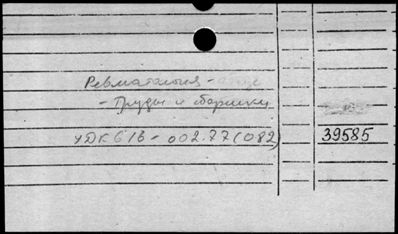 Ревматология - общие
- Труды и сборники
УДК 616-002.77(082) 39585